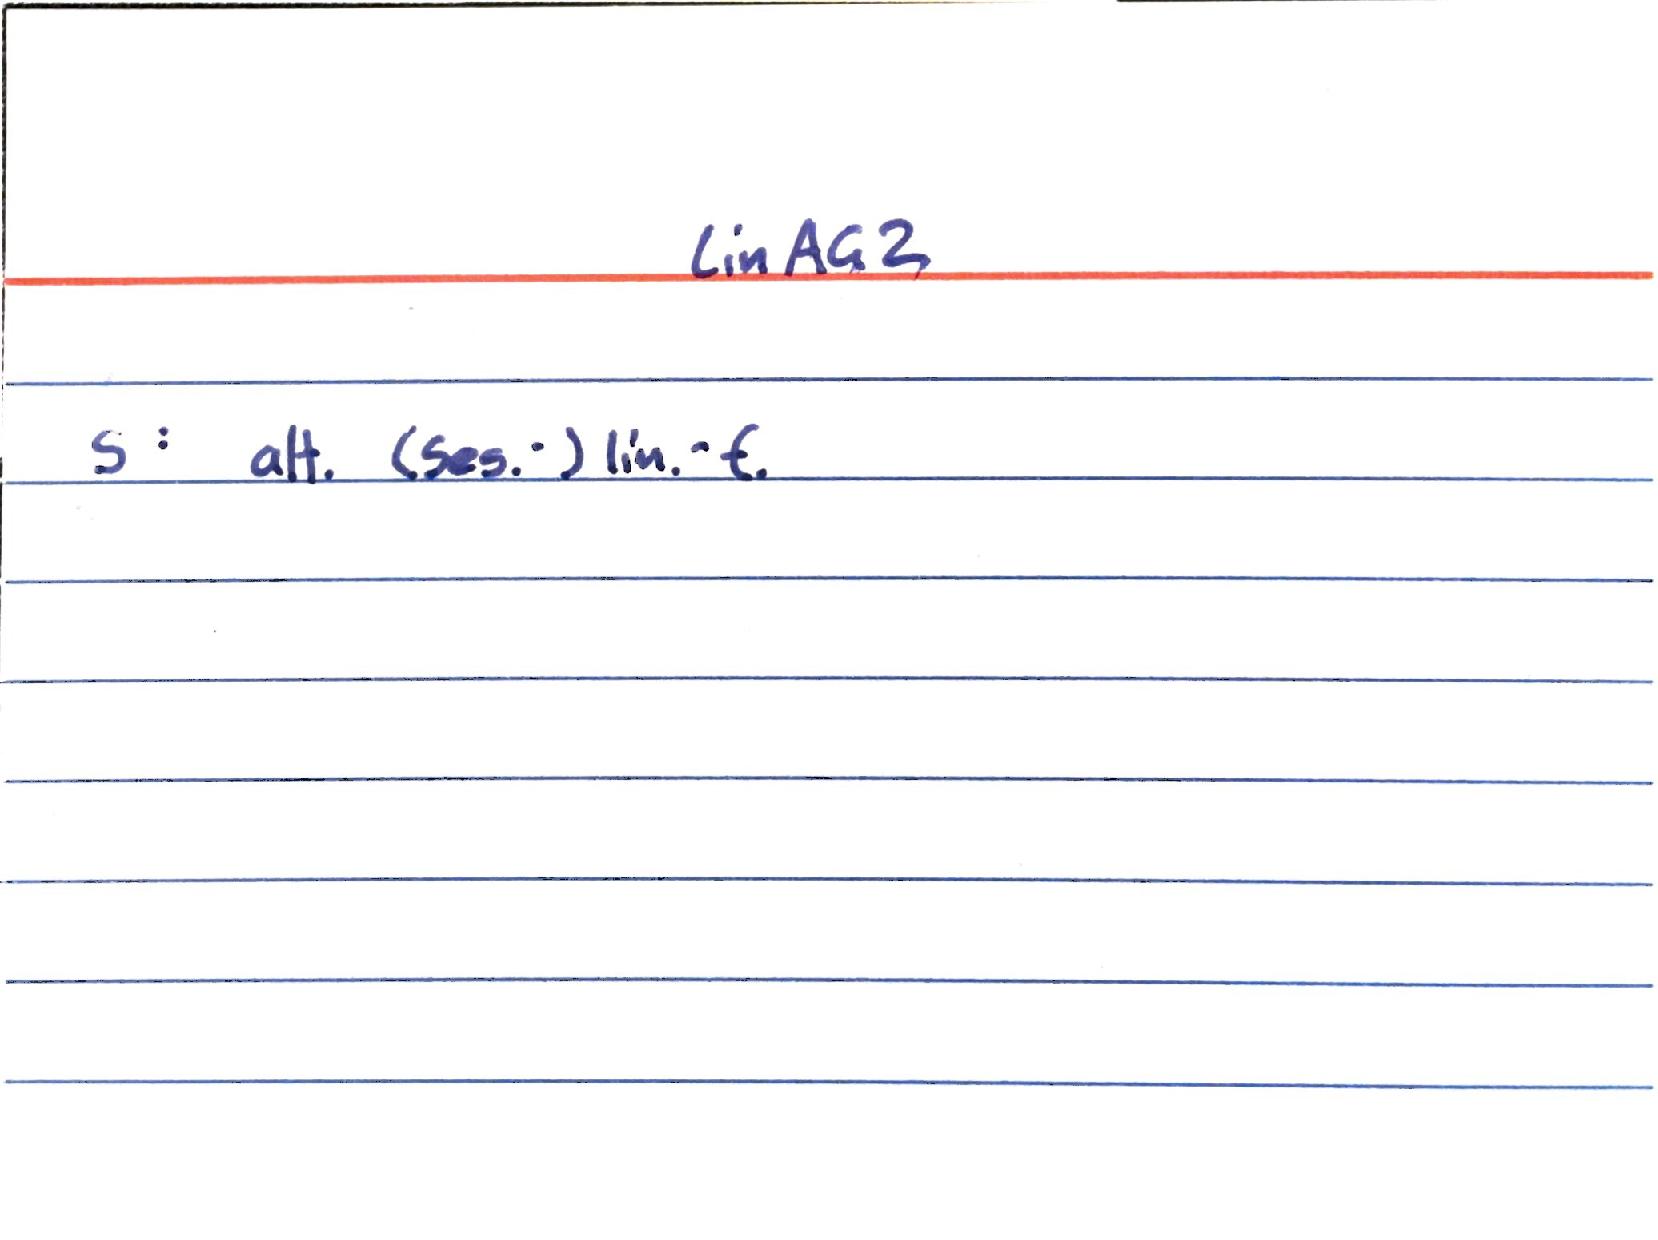 Lin AG 2
S: alt. (Ses.-) lin.-f.